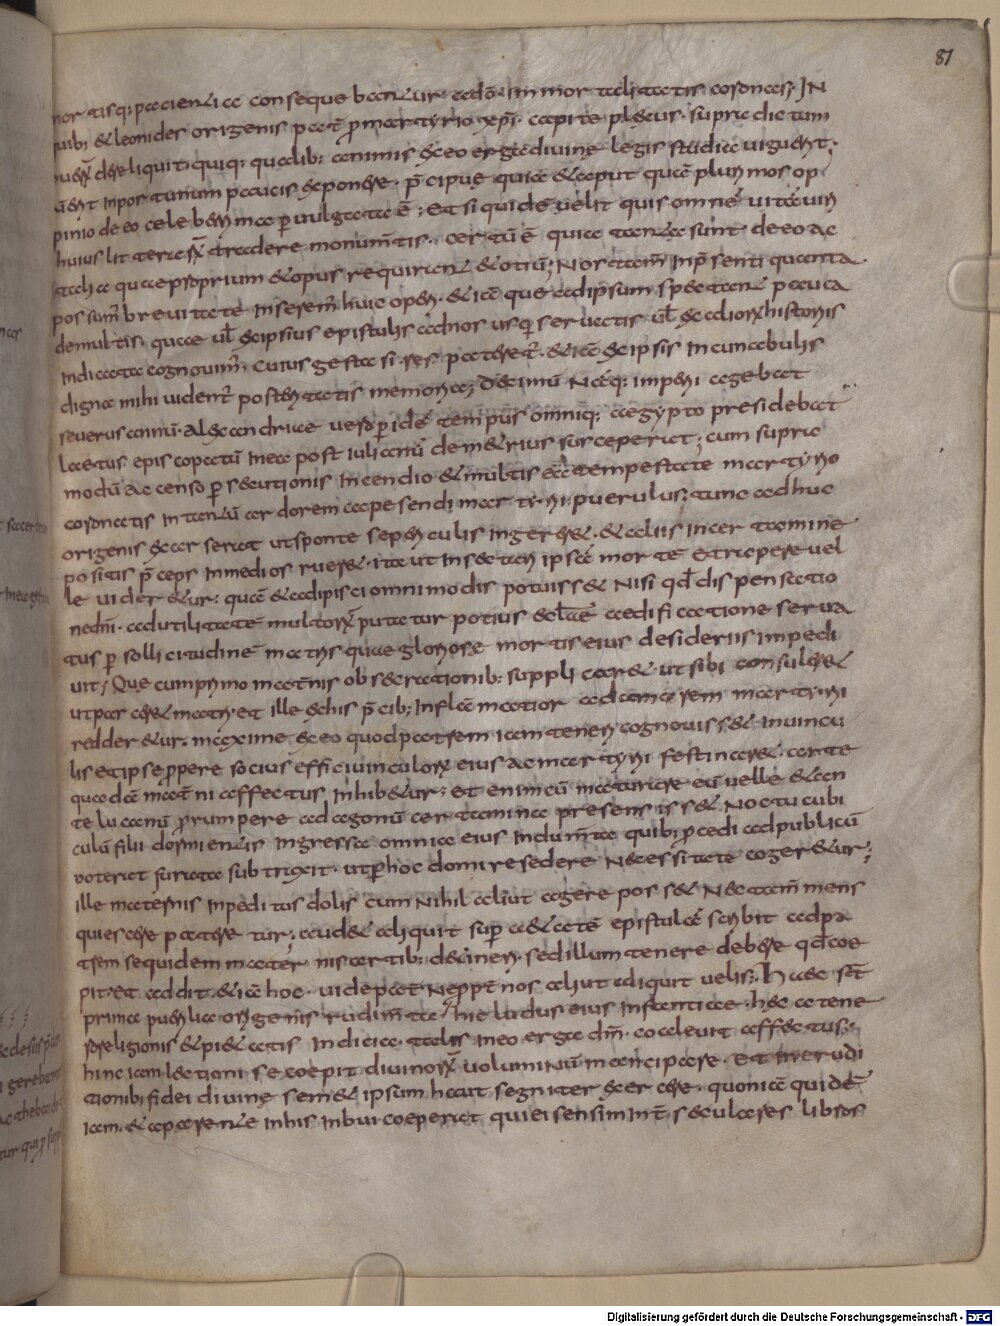 81
mortisq; pacientia consequebantur. addō. immortalitatis coronas; IN
quib; & leonides origenis pat̄ p̄ martyrio xp̄i. capite plexus. supra dictum
dereliquit. quiq; qualib; animis & eo erga divinę legis studia viguerit;
inportunum paucis exponere. p̄cipuę quia & apud quā plurimos op
pinio de eo celeberrima p̄ vulgata ē; Et si quidē velit quis omnē vitā viri
huius litterarꝝ tradere monum̄tis. certū ē quia tanta sunt de eo ac
talia quae proprium & opus requirant & otiū; Nos tam̄ inp̄senti quanta
possum̄ brevitate inserem̄ huic operi. & iā que ad ipsum spectant pauca
de multis. quae ul̄ ex ipsius epistulis ad nos usq; servatis ul̄ ex aliorꝝ historiis
indicata cognovim̄; Cuius gesta si res pateret̄. & iā ex ipsis incunabulis
digna mihi videnr̄ posteritatis memoria; Decimū Naq; imperii agebat
severus annū. alexandriae vero p̄ idē tempus omniq; aegypto presidebat
laetus episcopatū inea post iulianū demetrius susceperat; cum supra
modū accenso p̄secutionis incendio & multis eā tempestate martyrio
coronatis intantū ardorem capessendi martyrii. puerulus; tunc adhuc
origenis exarserat ut sponte se periculis ingerer&. & aliis incertamine
positis p̄ceps inmedios ruer&. ita ut insectari ipsā mortē & rapere vel
le vider&ur: quā & adipisci omnimodis potuiss& Nisi qd̄ dispensatio
nedn̄i. ad utilitatē multorꝝ putatur potius aedificatione serva
tus p̄ sollicitudinē matris quae gloriosae mortis eius desideriis impedi
vit; Quę cum primo maternis obsecrationib: supplicar& ut sibi consuler&
utparcer& matri. Et ille exhis p̄cib; inflāmatior ad amorem martyrii
redder&ur. maxime ex eo quod patrem iam teneri cognoviss& invincu
lis et ipse p̄pere socius effici vinculorꝝ eius ac martyrii festinar&. arte
quadā mat̄ni affectus inhib&ur; Et enim cū maturare eū velle & an
te lucanū p̄rumpere ad agonū certamina presensiss& Noctu cubi
culū filii dormientis ingressa omnia eius indum̄ta quib; p̄cedi ad publicū
poterat furata subtraxit. ut p̄ hoc domi resedere Necessitate coger&ur;
ille maternis inpeditus dolis cum Nihil aliut agere poss& Nec tam̄ mens
quiescere pateretur; aud& aliquit sup̄ a&atē epistulā scribit ad pa
trem sequidem mater. nis artib; detineri. sed illum tenere deber& qd̄ coe
pit. Et addit &iā hoc. vide pat̄ Ne p̄pt̄ nos aliut aliquit velis; Haec st̄
prima puerilia origenis rudim̄ta hic ludus eius infantiae. haec atene
ro religionis & pi&atis indicia. talis in eo erga dm̄. coaleuit affectus;
hinc iam lectioni se coepit divinorꝝ voluminū mancipare. Et in erudi
tionib; fidei divinę sem& ipsum haut segniter exercere. quoniā quidē
iam. & a parente in his inbui coeperat qui ei sensim int̄ seculares libros